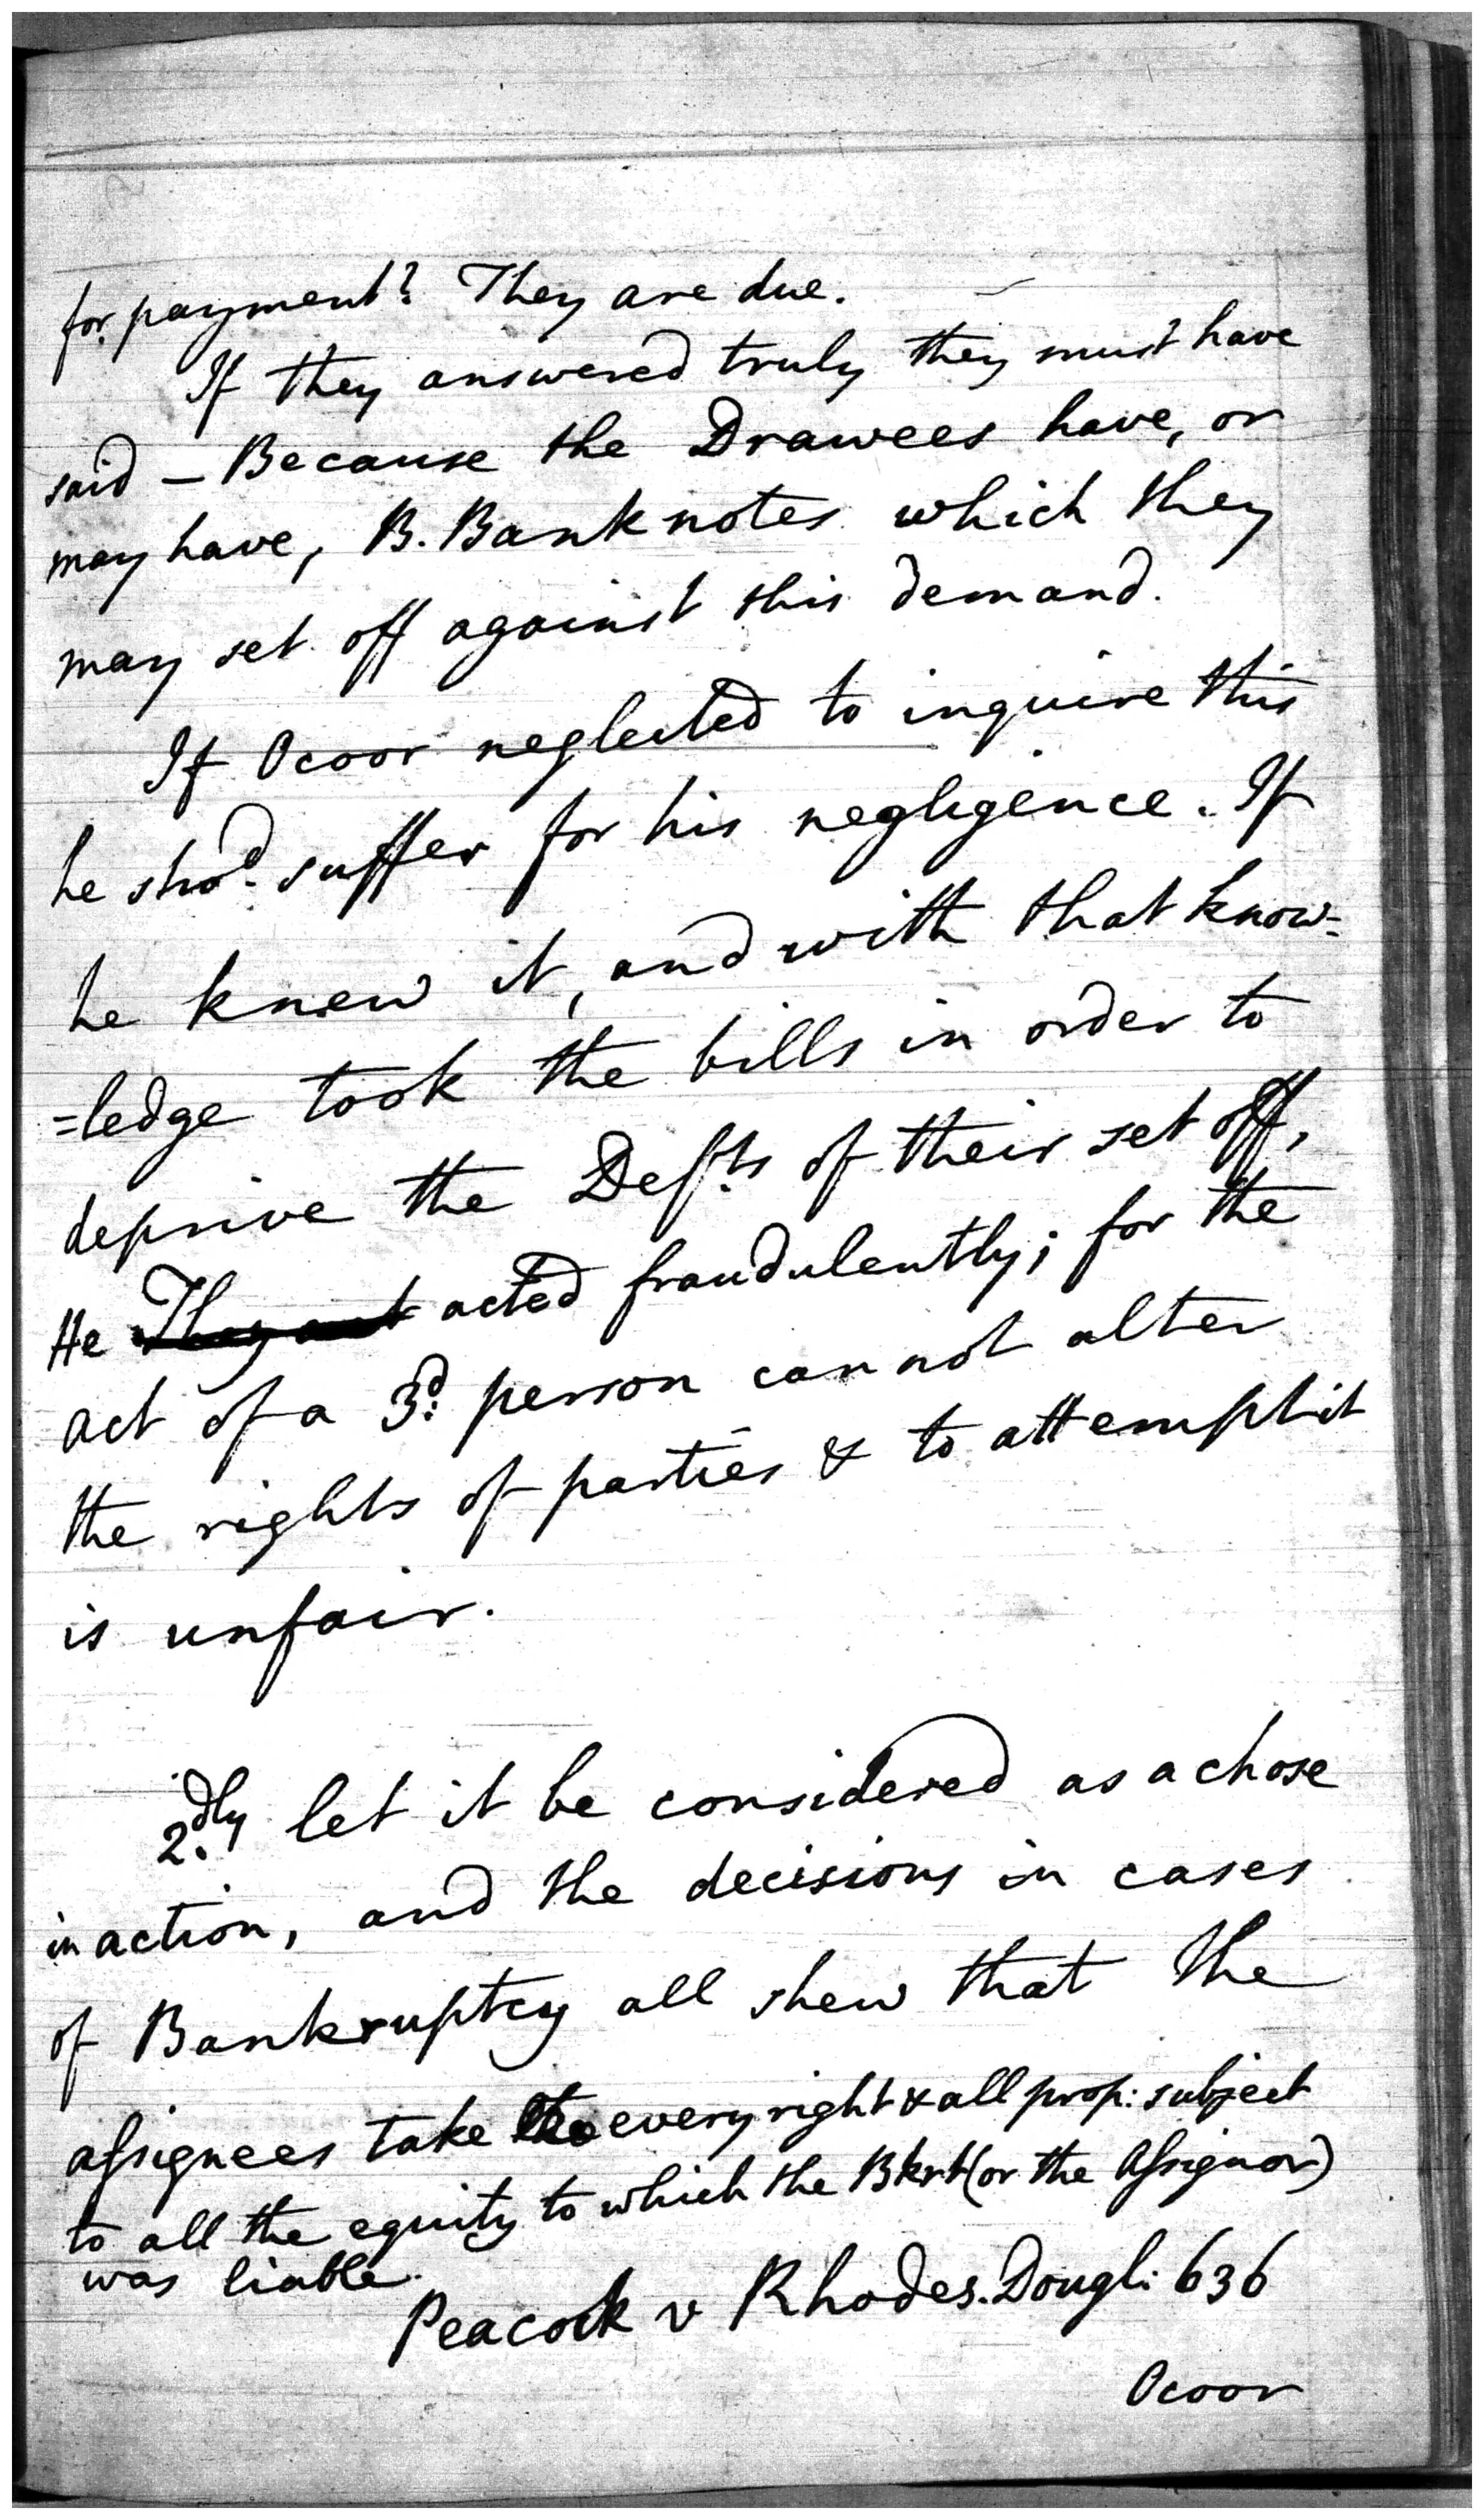 for payment? They are due.
If they answered truly they must have
said — Because the Drawees have, or
may have, B. Bank notes which they
may set off against this demand.
If Ocoor neglected to inquire this
he sho.d suffer for his negligence. If
he knew it, and with that know=
=ledge took the bills in order to
deprive the Def.ts of their set off,
He They act acted fraudulently; for the
act of a 3.d person cannot alter
the rights of parties & to attempt it
is unfair.
2.dly let it be considered as a chose
in action, and the decisions in cases
of Bankruptcy all shew that the
assignees take the every right & all prop: subject
to all the equity to which the Bkrt (or the Assignor)
was liable.
Peacock v Rhodes. Dougl: 636
Ocoor